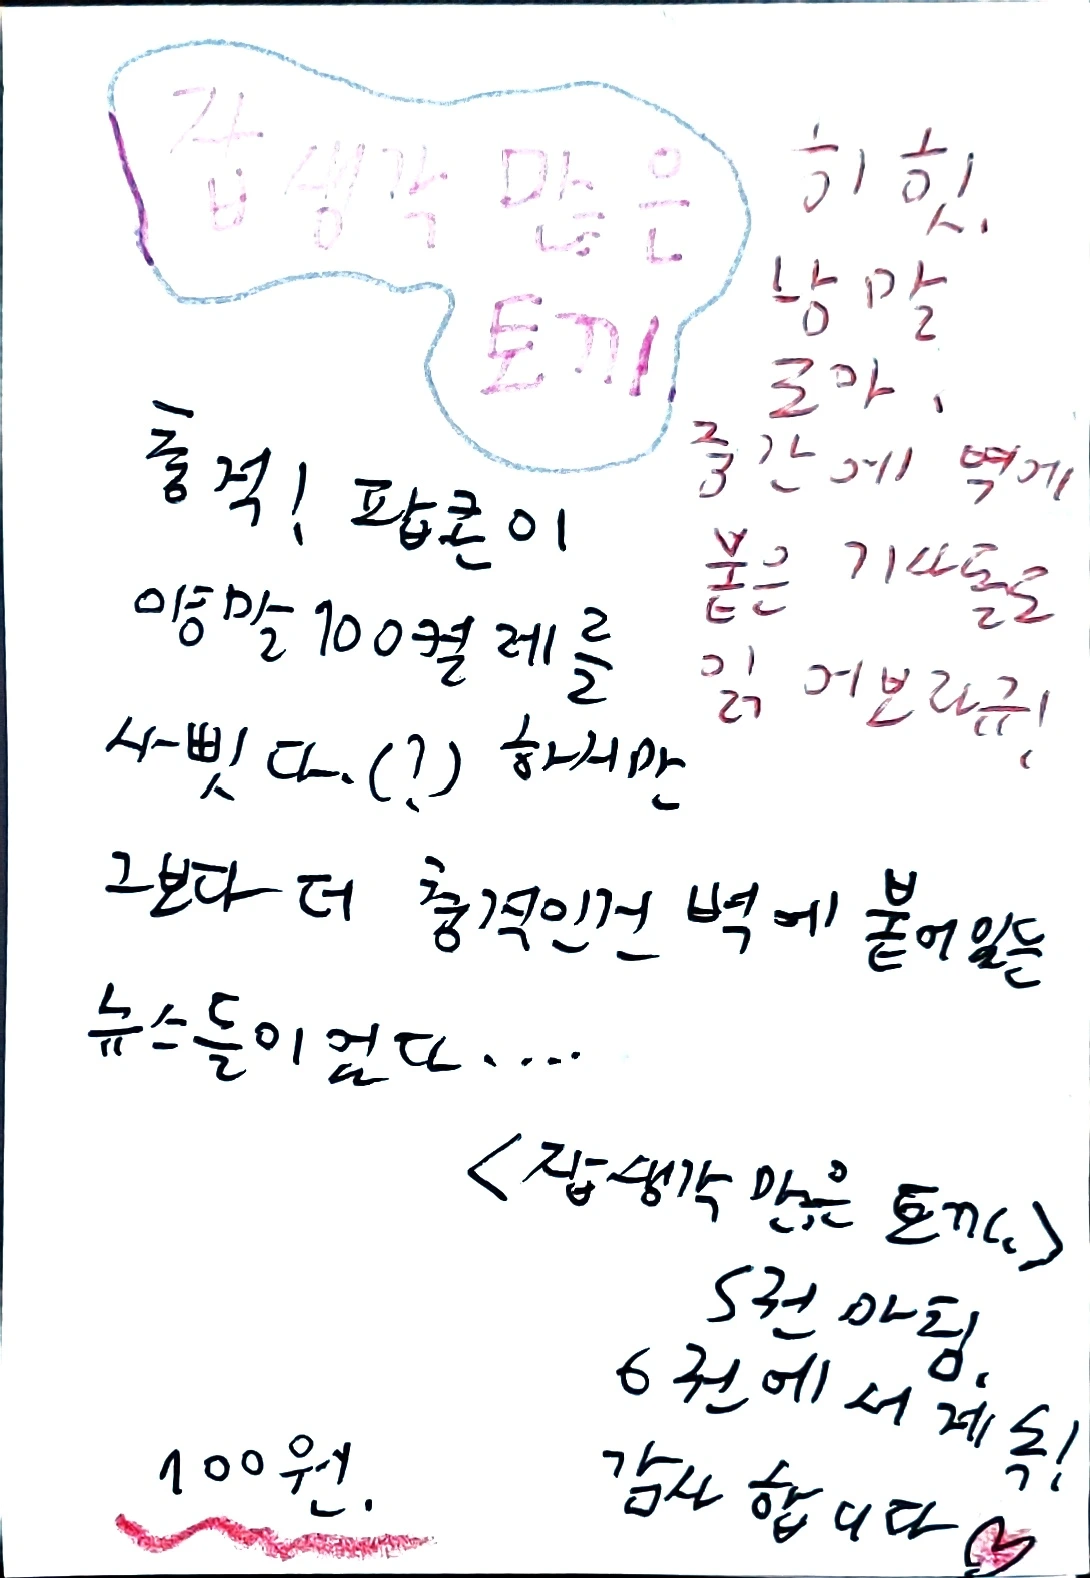 잡생각 많은
토끼
히힛.
낭말
로아.
중간에 벽에
붙은 기사들도
읽어보라규!
충격! 팝콘이
양말 100켤레를
사삣다.(?) 하지만
그보다 더 충격인건 벽에 붙어있는
뉴스들이 없다....
<잡생각 많은 토끼.>
5권 마팀.
6권에서 계속!
감사합니다
100원.